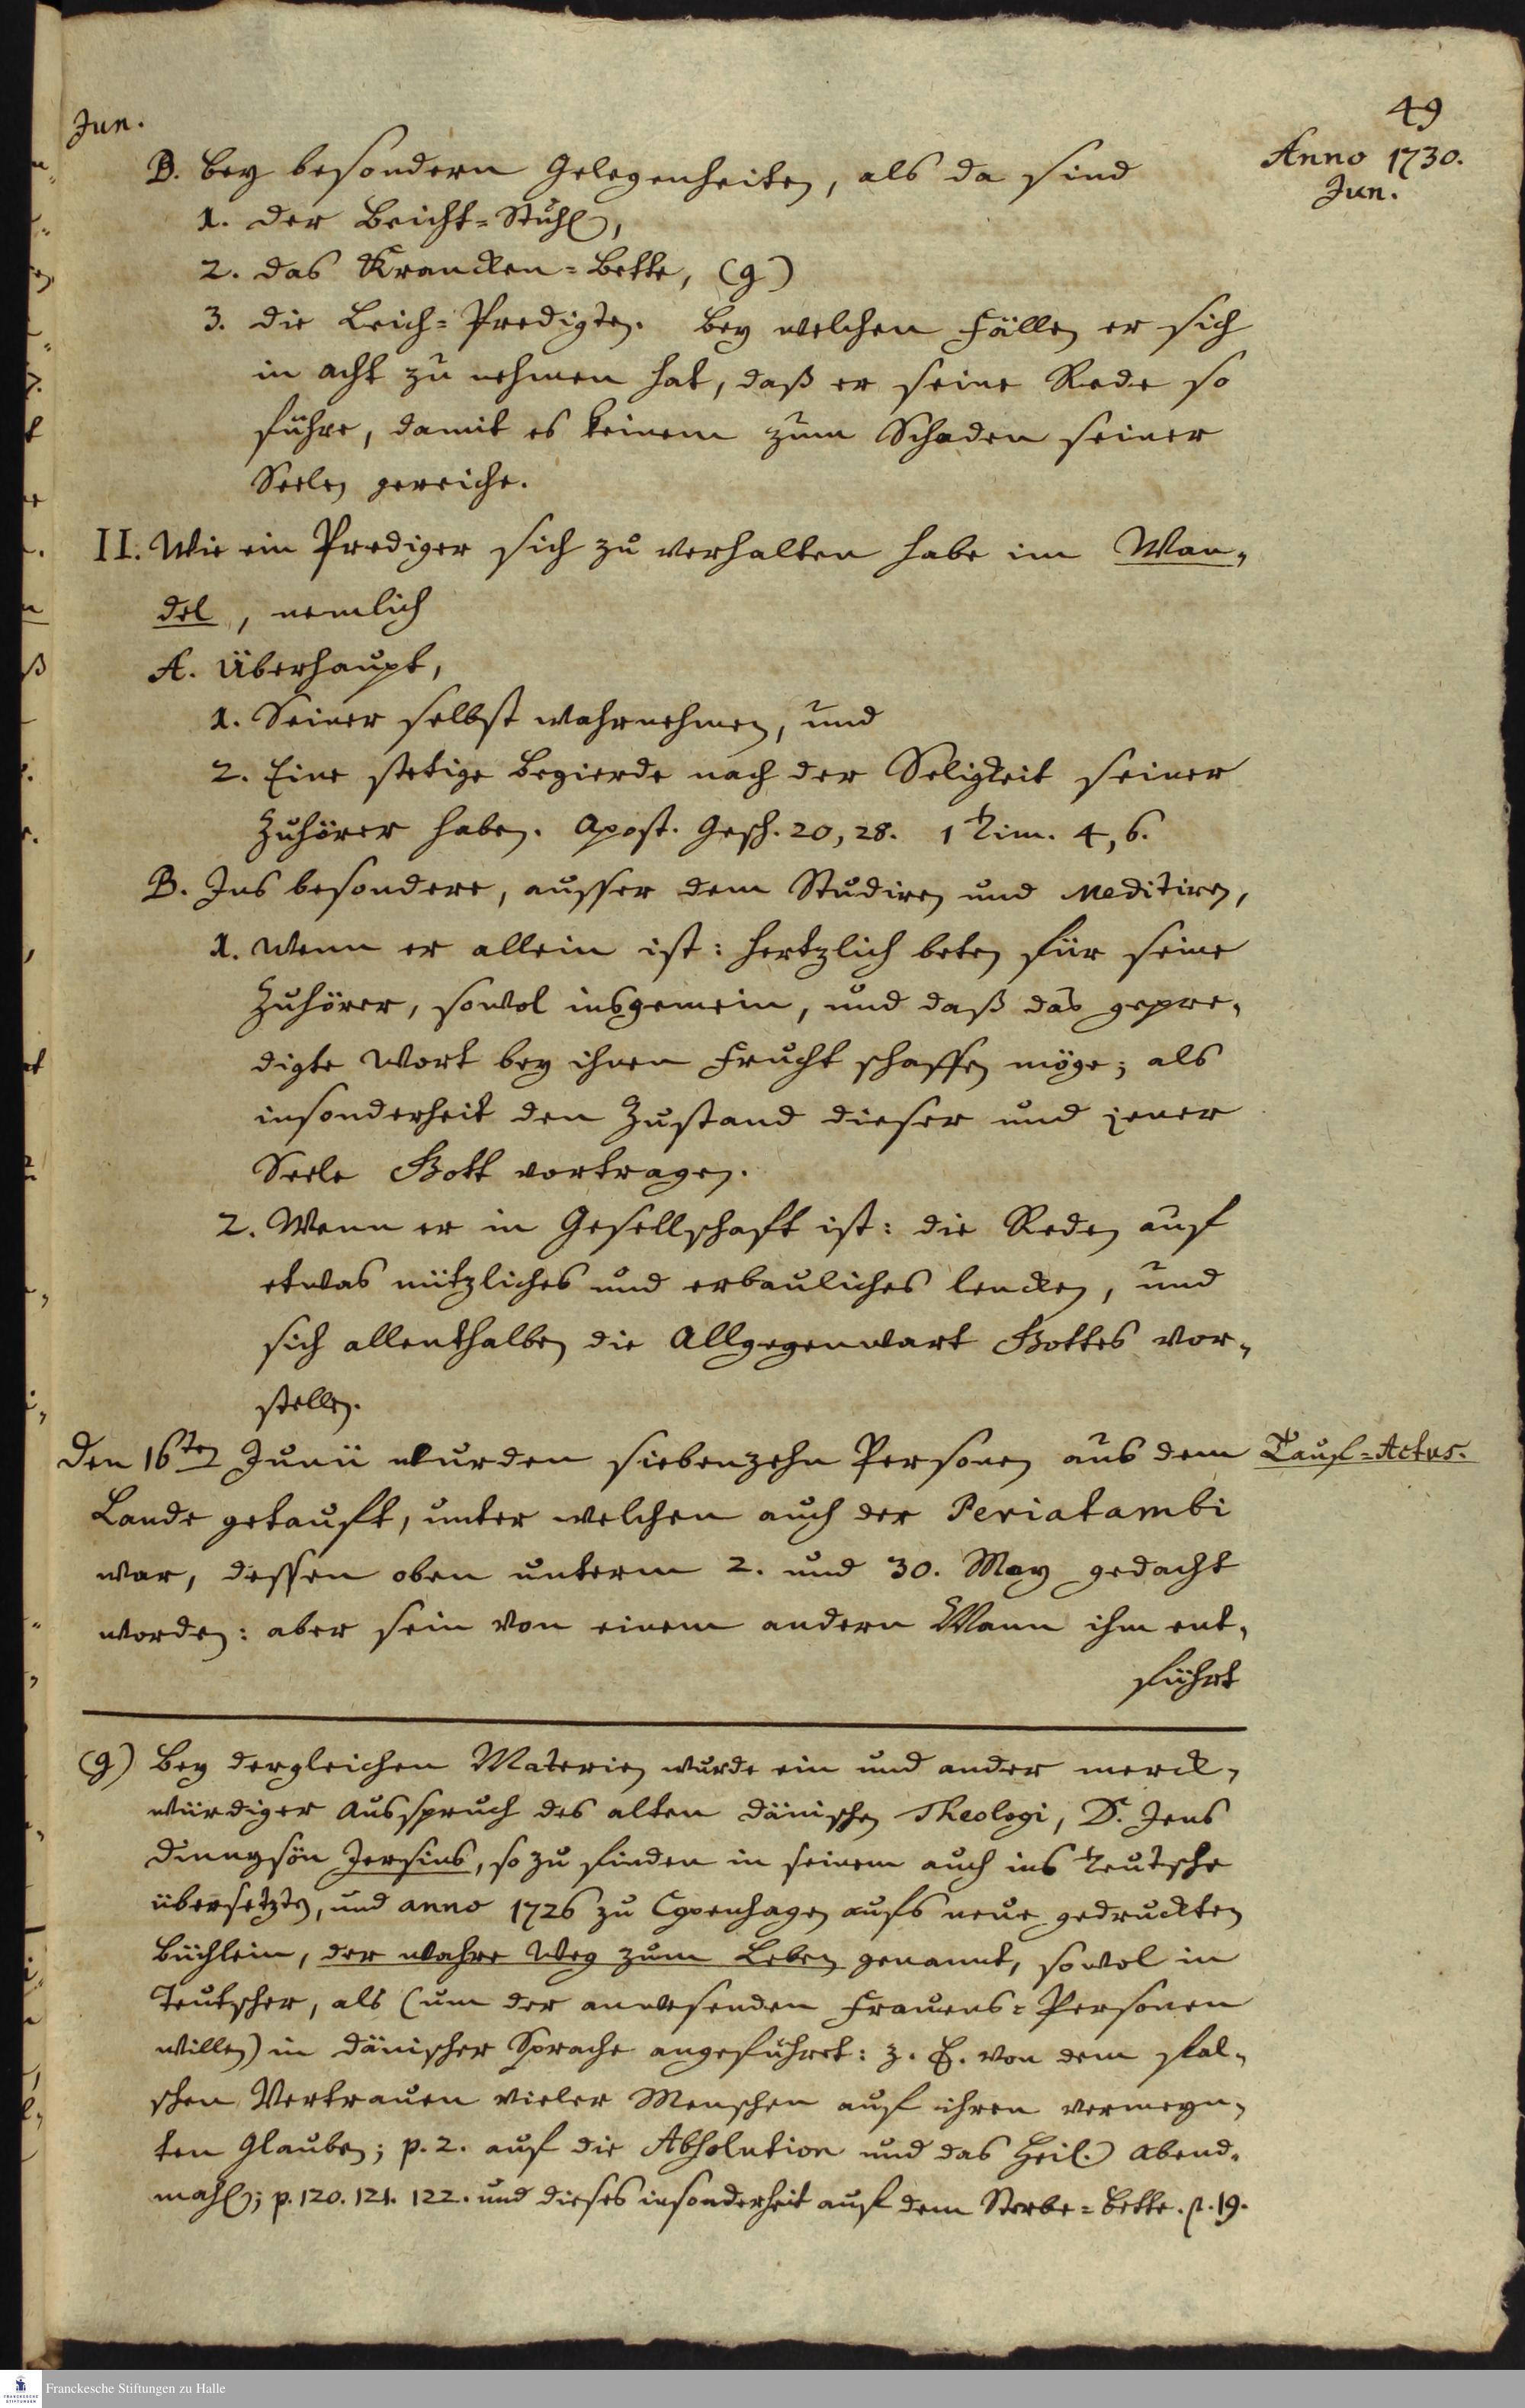 49
Jun.
Anno 1730.
Jun.
B. bey besondern Gelegenheiten, als da sind
1. der Beicht=Stuhl,
2. das Krancken=Bette, (g)
3. die Leich=Predigten. Bey welchen Fällen er sich
in acht zu nehmen hat, daß er seine Rede so
führe, damit es keinem zum Schaden seiner
Seelen gereiche.
II. Wie ein Prediger sich zu verhalten habe im Wan-
del, nemlich
A. Überhaupt,
1. Seiner selbst wahrnehmen, und
2. Eine stetige Begierde nach der Seligkeit seiner
Zuhörer haben. Apost. Gesch. 20, 28. 1 Tim. 4, 6.
B. Ins besondere, ausser dem Studiren und Meditiren,
1. Wenn er allein ist: hertzlich beten für seine
Zuhörer, sowol insgemein, und daß das gepre-
digte Wort bey ihnen Frucht schaffen möge; als
insonderheit den Zustand dieser und jener
Seele Gott vortragen.
2. Wenn er in Gesellschaft ist: die Reden auf
etwas nützliches und erbauliches lencken, und
sich allenthalben die Allgegenwart Gottes vor-
stellen.
Den 16ten Junii wurden siebenzehn Personen aus dem
Tauf=Actus.
Lande getauft, unter welchen auch der Periatambi
war, dessen oben unterm 2. und 30. May gedacht
worden: aber sein von einem andern Mann ihm ent-
führt
(g) Bey dergleichen Materien wurde ein und ander merck-
würdiger Ausspruch des alten dänischen Theologi, D. Jens
Dinnysön Jersins, so zu finden in seinem auch ins Teutsche
übersetzten, und anno 1726 zu Copenhagen aufs neue gedruckten
Büchlein, der wahre Weg zum Leben genannt, sowol in
Teutscher, als (um der anwesenden Frauens=Personen
willen) in dänischer Sprache angeführet: z. E. von dem fal-
schen Vertrauen vieler Menschen auf ihren vermeyn-
ten Glauben; p. 2. auf die Absolution und das Heil. Abend-
mahl; p. 120. 121. 122. und dieses insonderheit auf dem Sterbe=Bette. p. 19.
Franckesche Stiftungen zu Halle